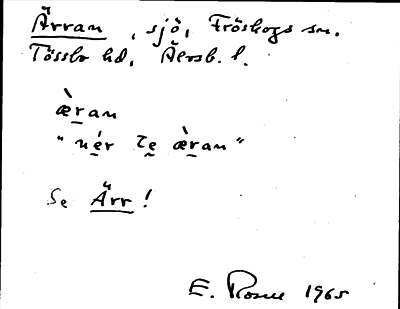 Ärran, sjö, Fröskogs sn.
Tössbo hd, Älvsb. l.
æ̀ran
"nér te æ̀ran"
Se Ärr!
E. Rosell 1965